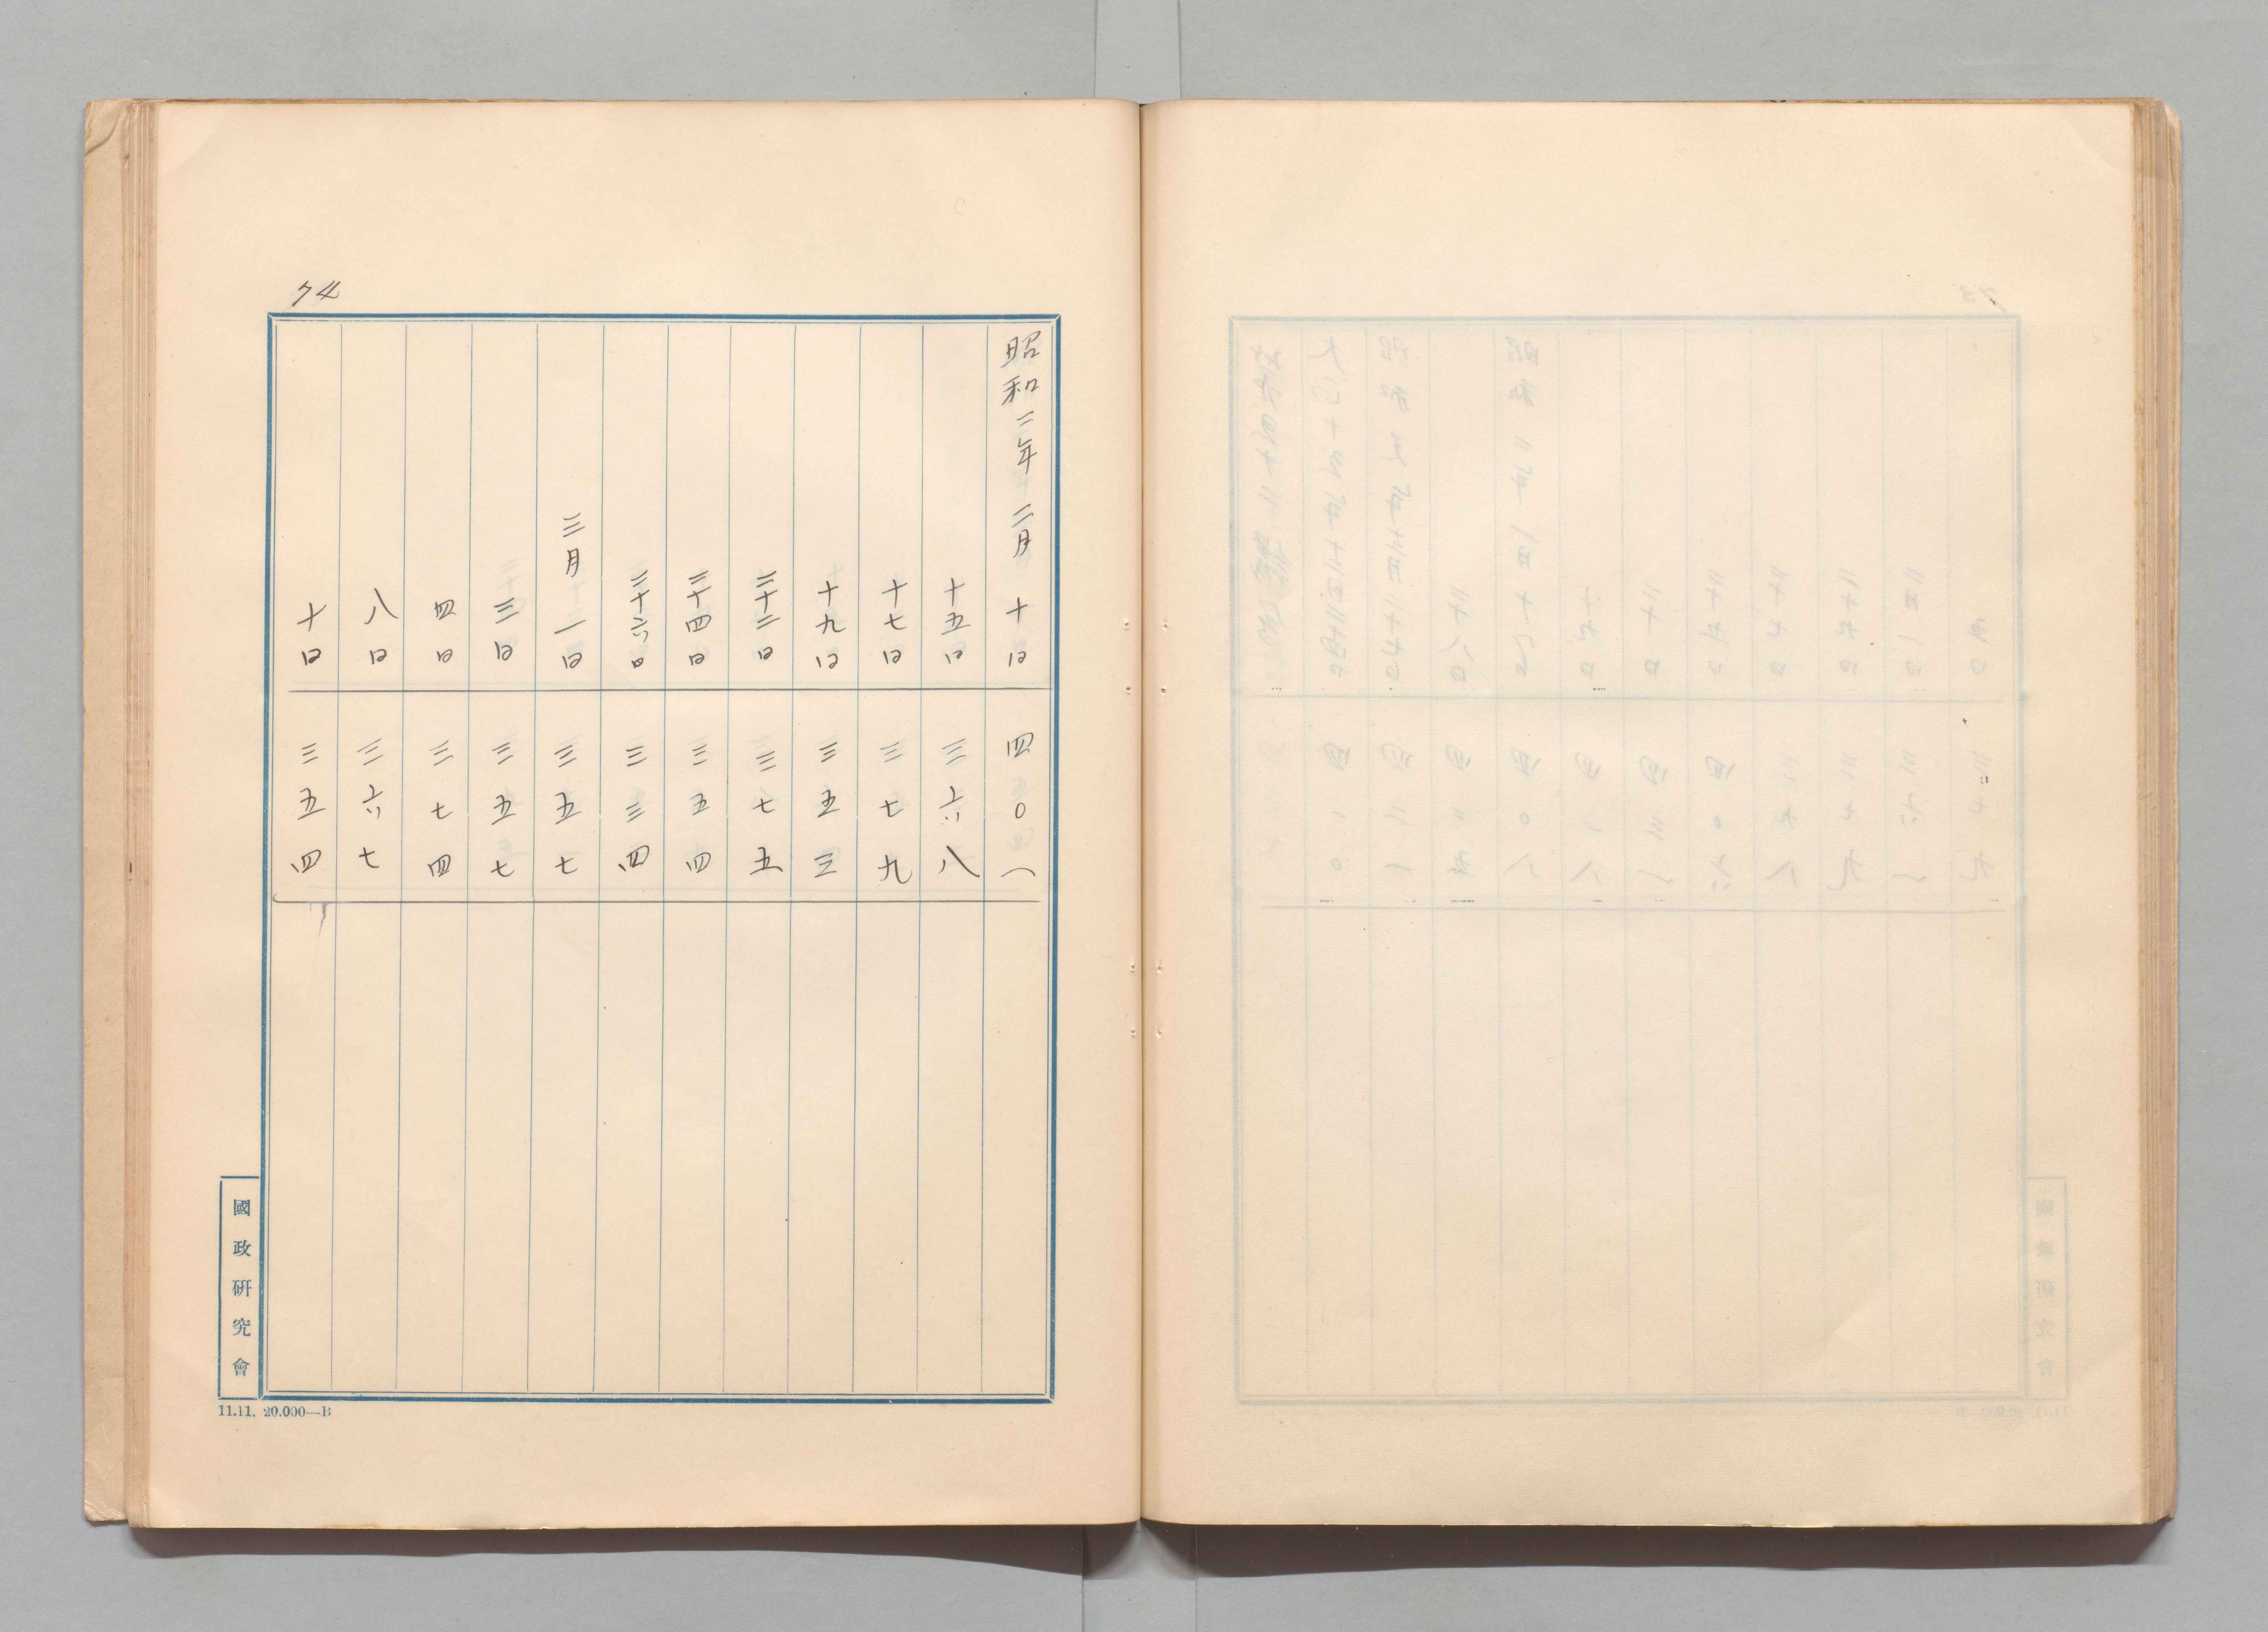 74
昭和二年二月十日 四〇一
十五日 三六八
十七日 三七九
十九日 三五三
二十二日 三七五
二十四日 三五四
二十六日 三三四
三月一日 三五七
三日 三五七
四日 三七四
八日 三六七
十日 三五四
國政研究會
11.11. 20.000—B